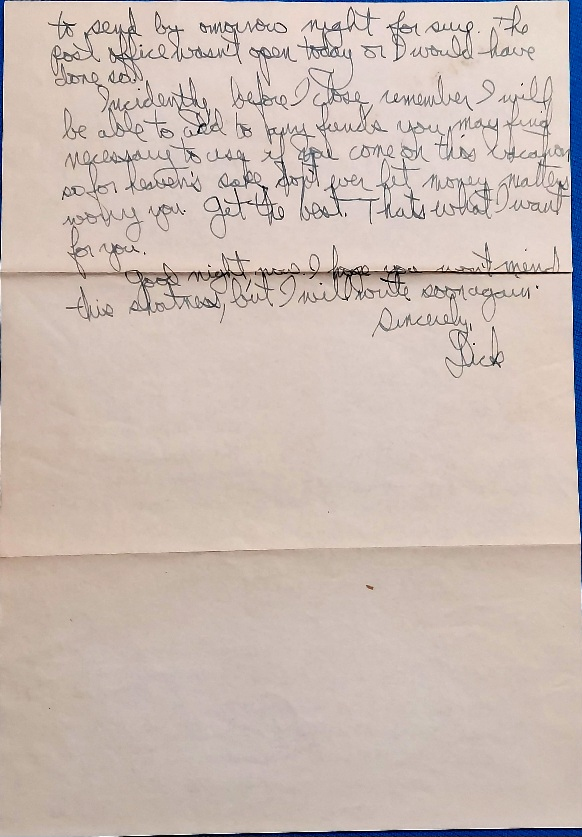 to send by omorrow night for sure. The
post office wasn't open today or I would have
done so.
Incidently before I close, remember I will
be able to add to any funds you may find
necessary to use if you come on this vacation
so for heaven's sake, don't ever let money matters
worry you. Get the best. Thats what I want
for you.
Good night now. I hope you won't mind
this shortness, but I will write soon again.
Sincerely,
Dick